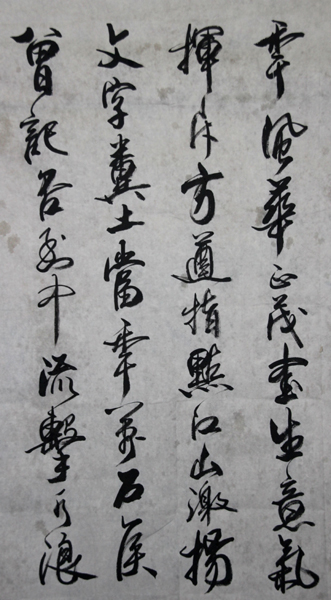 年風華正茂書生意氣
揮斥方遒指點江山激揚
文字糞土當年萬户侯
曾記否到中流擊水浪